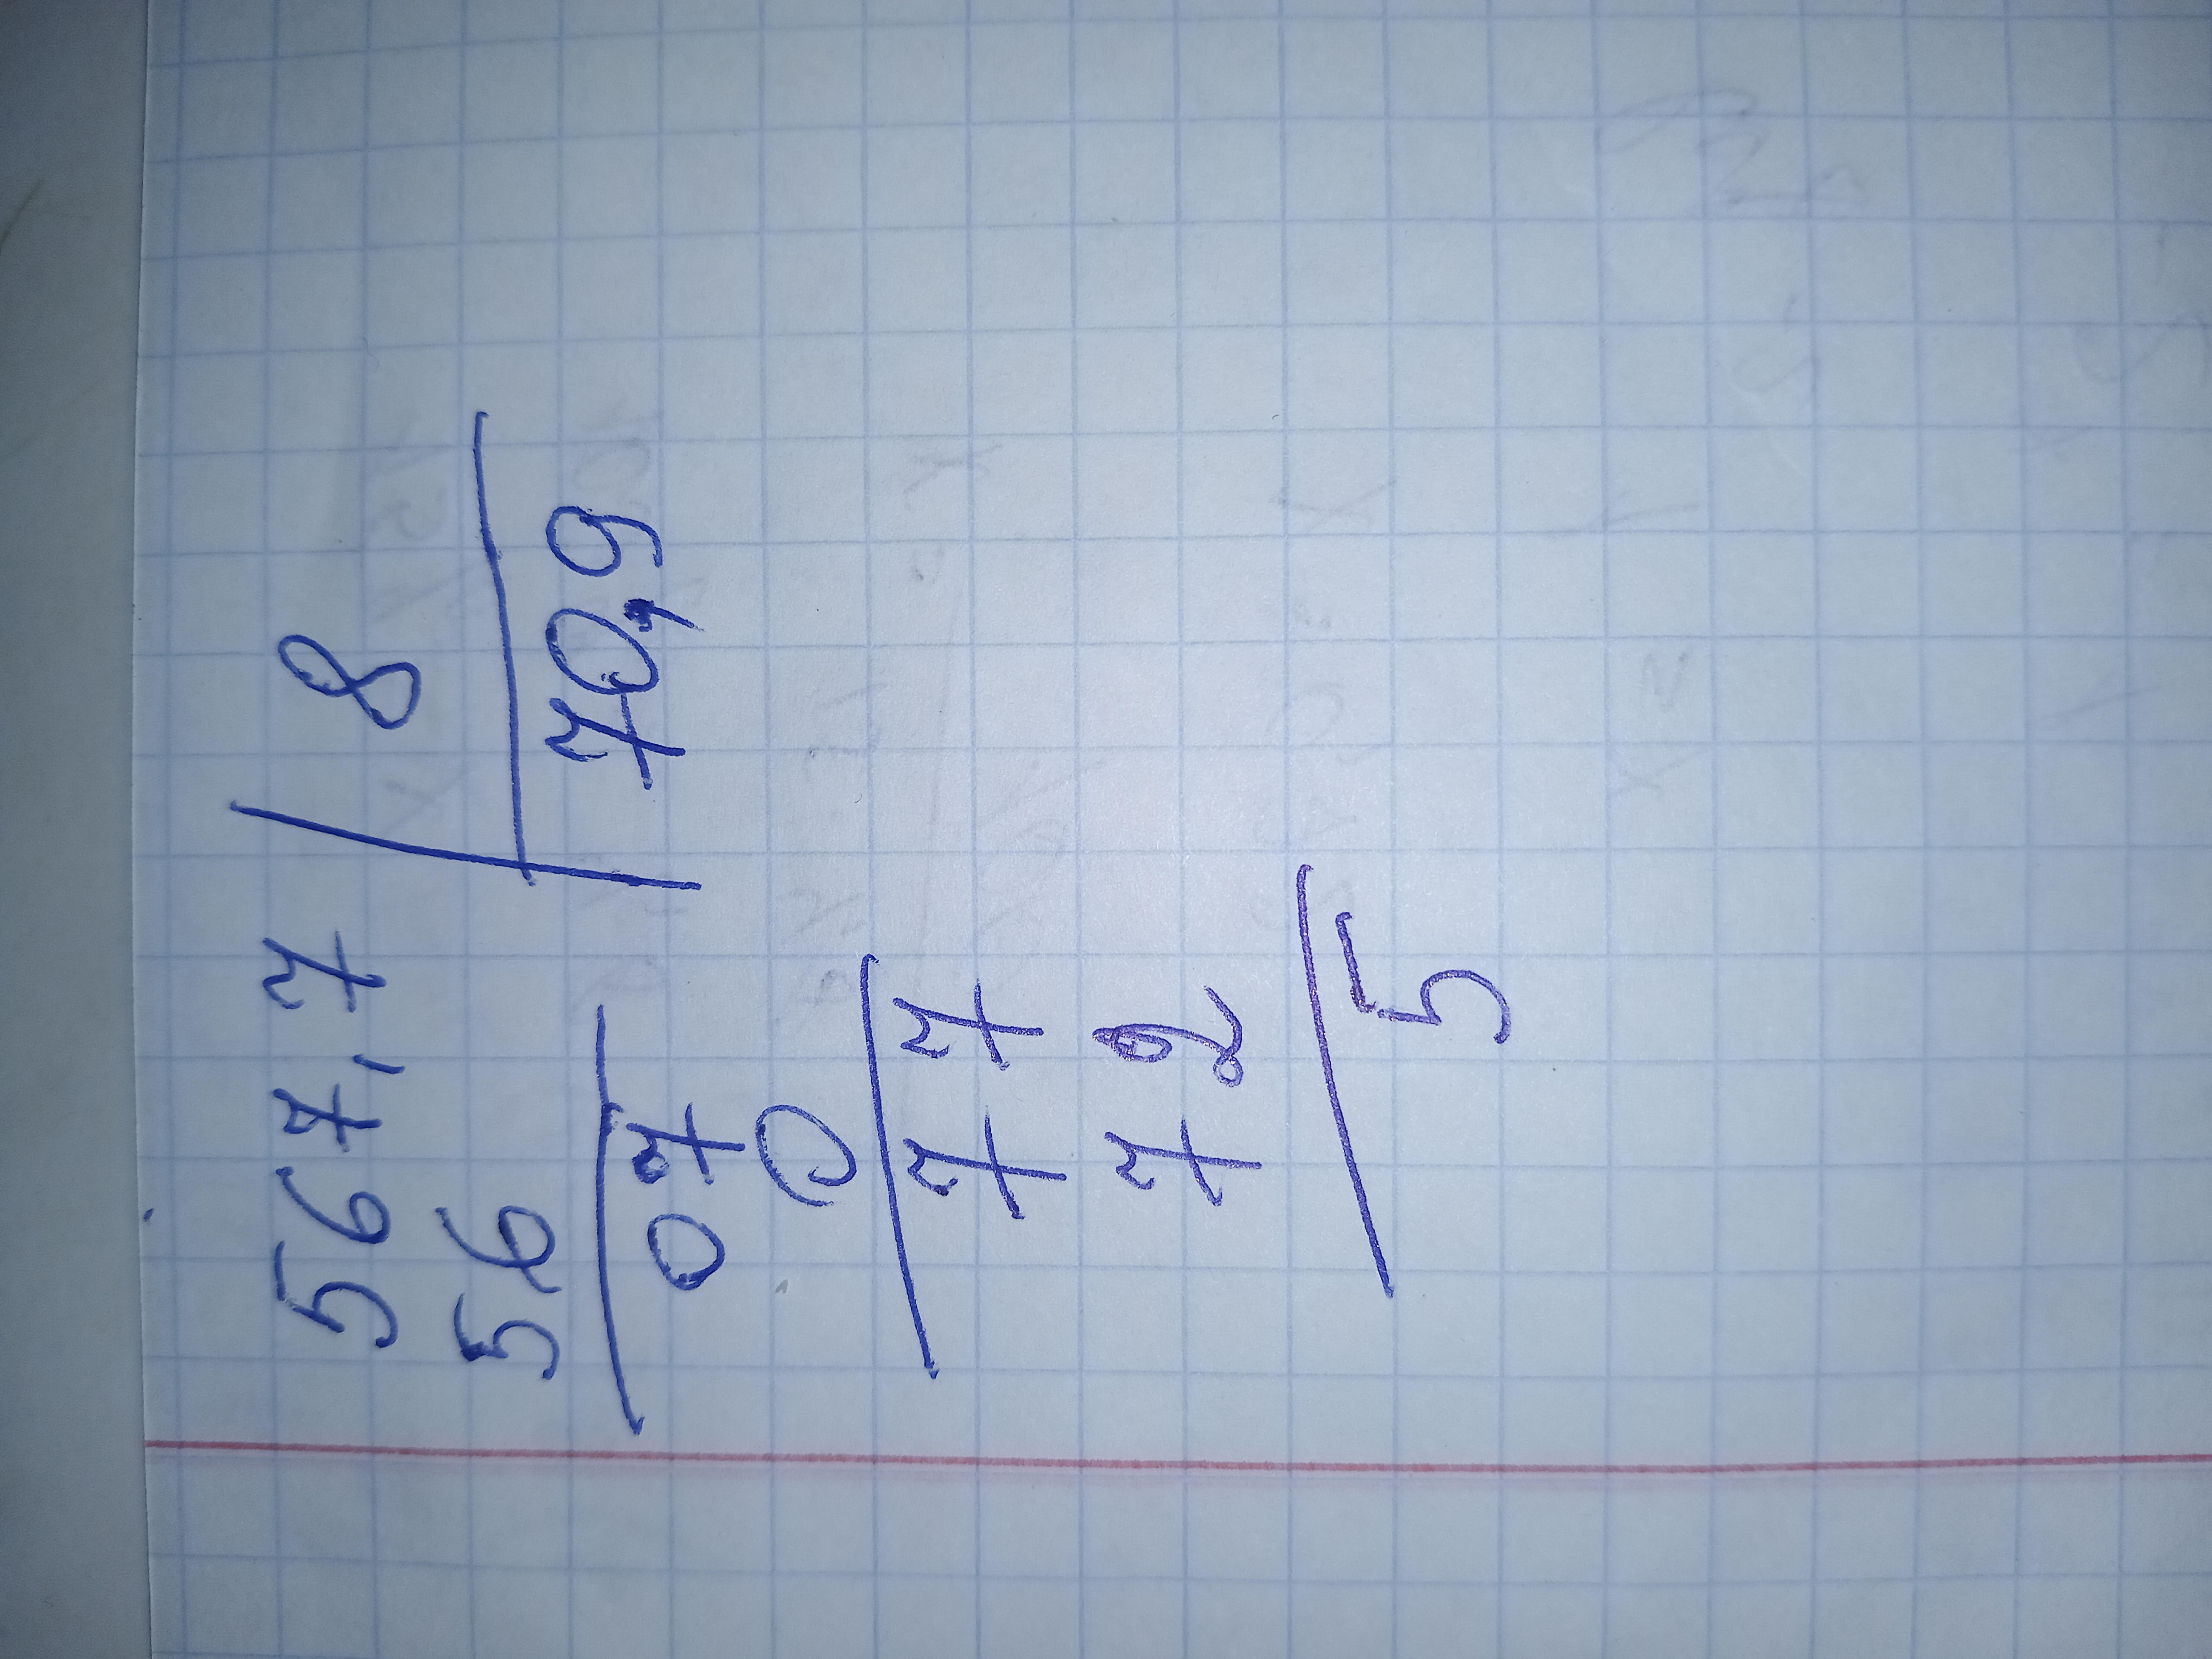 567,7 8
56 70,9
07
0
77
72
5